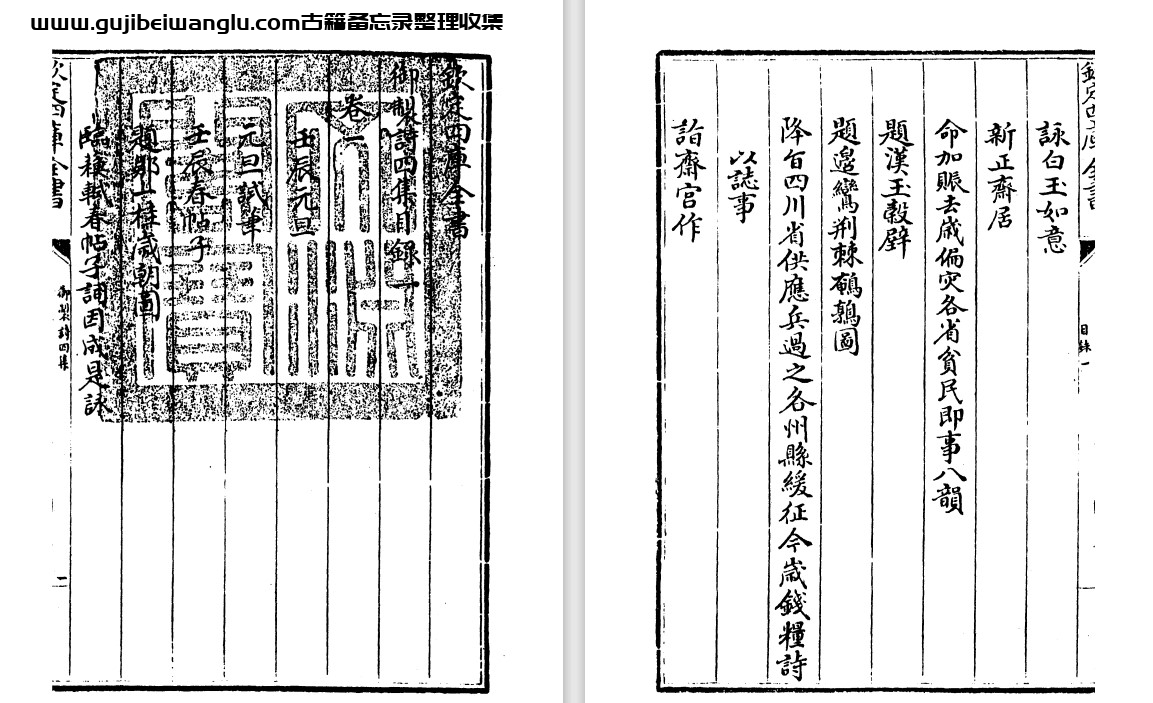 www.gujibeiwanglu.com古籍备忘录整理收集
欽定四庫全書
御製詩四集目錄一
卷一
壬辰元旦
元旦試筆
壬辰春帖子
題鄒一桂歲朝圖
臨蘇軾春帖子詞因成是詠
欽定四庫全書
御製詩四集
欽定四庫全書
目錄一
詠白玉如意
新正齋居
命加賑去歲偏災各省貧民即事八韻
題漢玉穀璧
題邊鸞荆棘鵪鶉圖
降旨四川省供應兵過之各州縣緩征今歲錢糧詩
以誌事
詣齋宮作